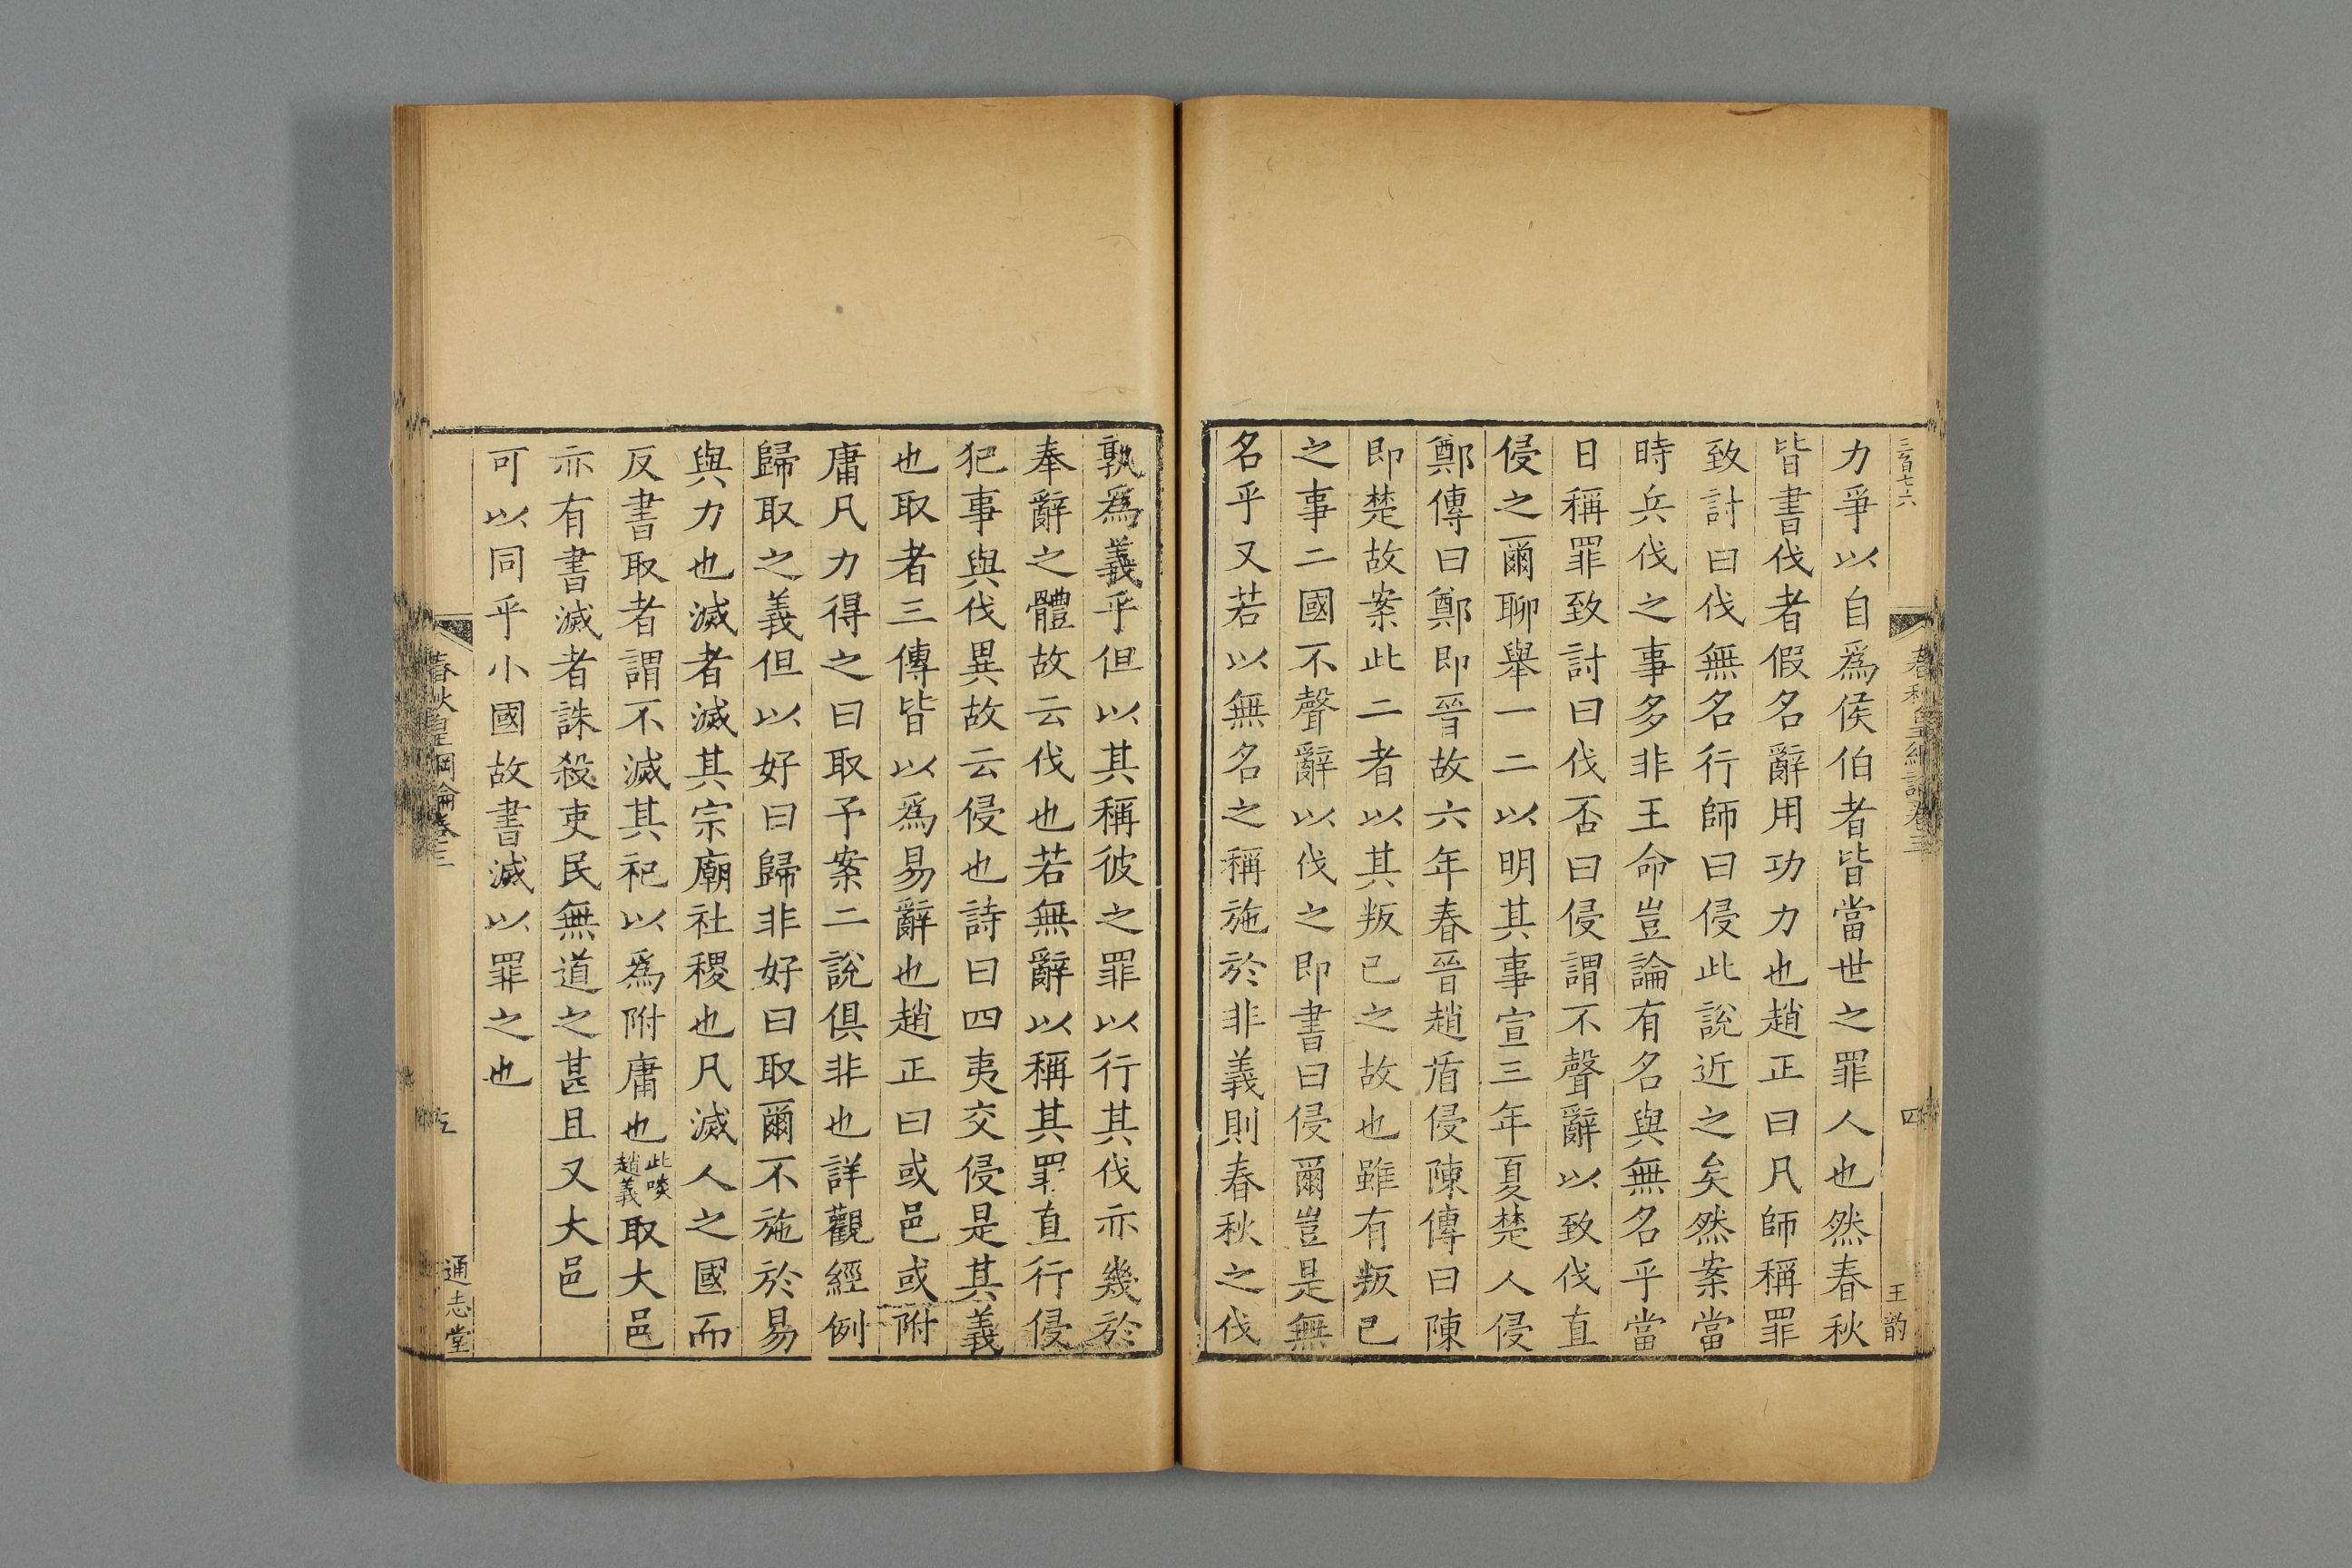 三百七六
春秋皇綱論卷三
四
王韵
力爭以自爲侯伯者皆當世之罪人也然春秋
皆書伐者假名辭用功力也趙正曰凡師稱罪
致討曰伐無名行師曰侵此說近之矣然案當
時兵伐之事多非王命豈論有名與無名乎當
日稱罪致討曰伐否曰侵謂不聲辭以致伐直
侵之爾聊舉一二以明其事宣三年夏楚人侵
鄭傳曰鄭即晉故六年春晉趙盾侵陳傳曰陳
即楚故案此二者以其叛已之故也雖有叛已
之事二國不聲辭以伐之即書曰侵爾豈是無
名乎又若以無名之稱施於非義則春秋之伐
孰爲義乎但以其稱彼之罪以行其伐亦幾於
奉辭之體故云伐也若無辭以稱其罪直行侵
犯事與伐異故云侵也詩曰四夷交侵是其義
也取者三傳皆以爲易辭也趙正曰或邑或附
庸凡力得之曰取予案二說俱非也詳觀經例
歸取之義但以好曰歸非好曰取爾不施於易
與力也滅者滅其宗廟社稷也凡滅人之國而
反書取者謂不滅其祀以爲附庸也此啖趙義取大邑
亦有書滅者誅殺吏民無道之甚且又大邑
可以同乎小國故書滅以罪之也
春秋皇綱論卷三
通志堂